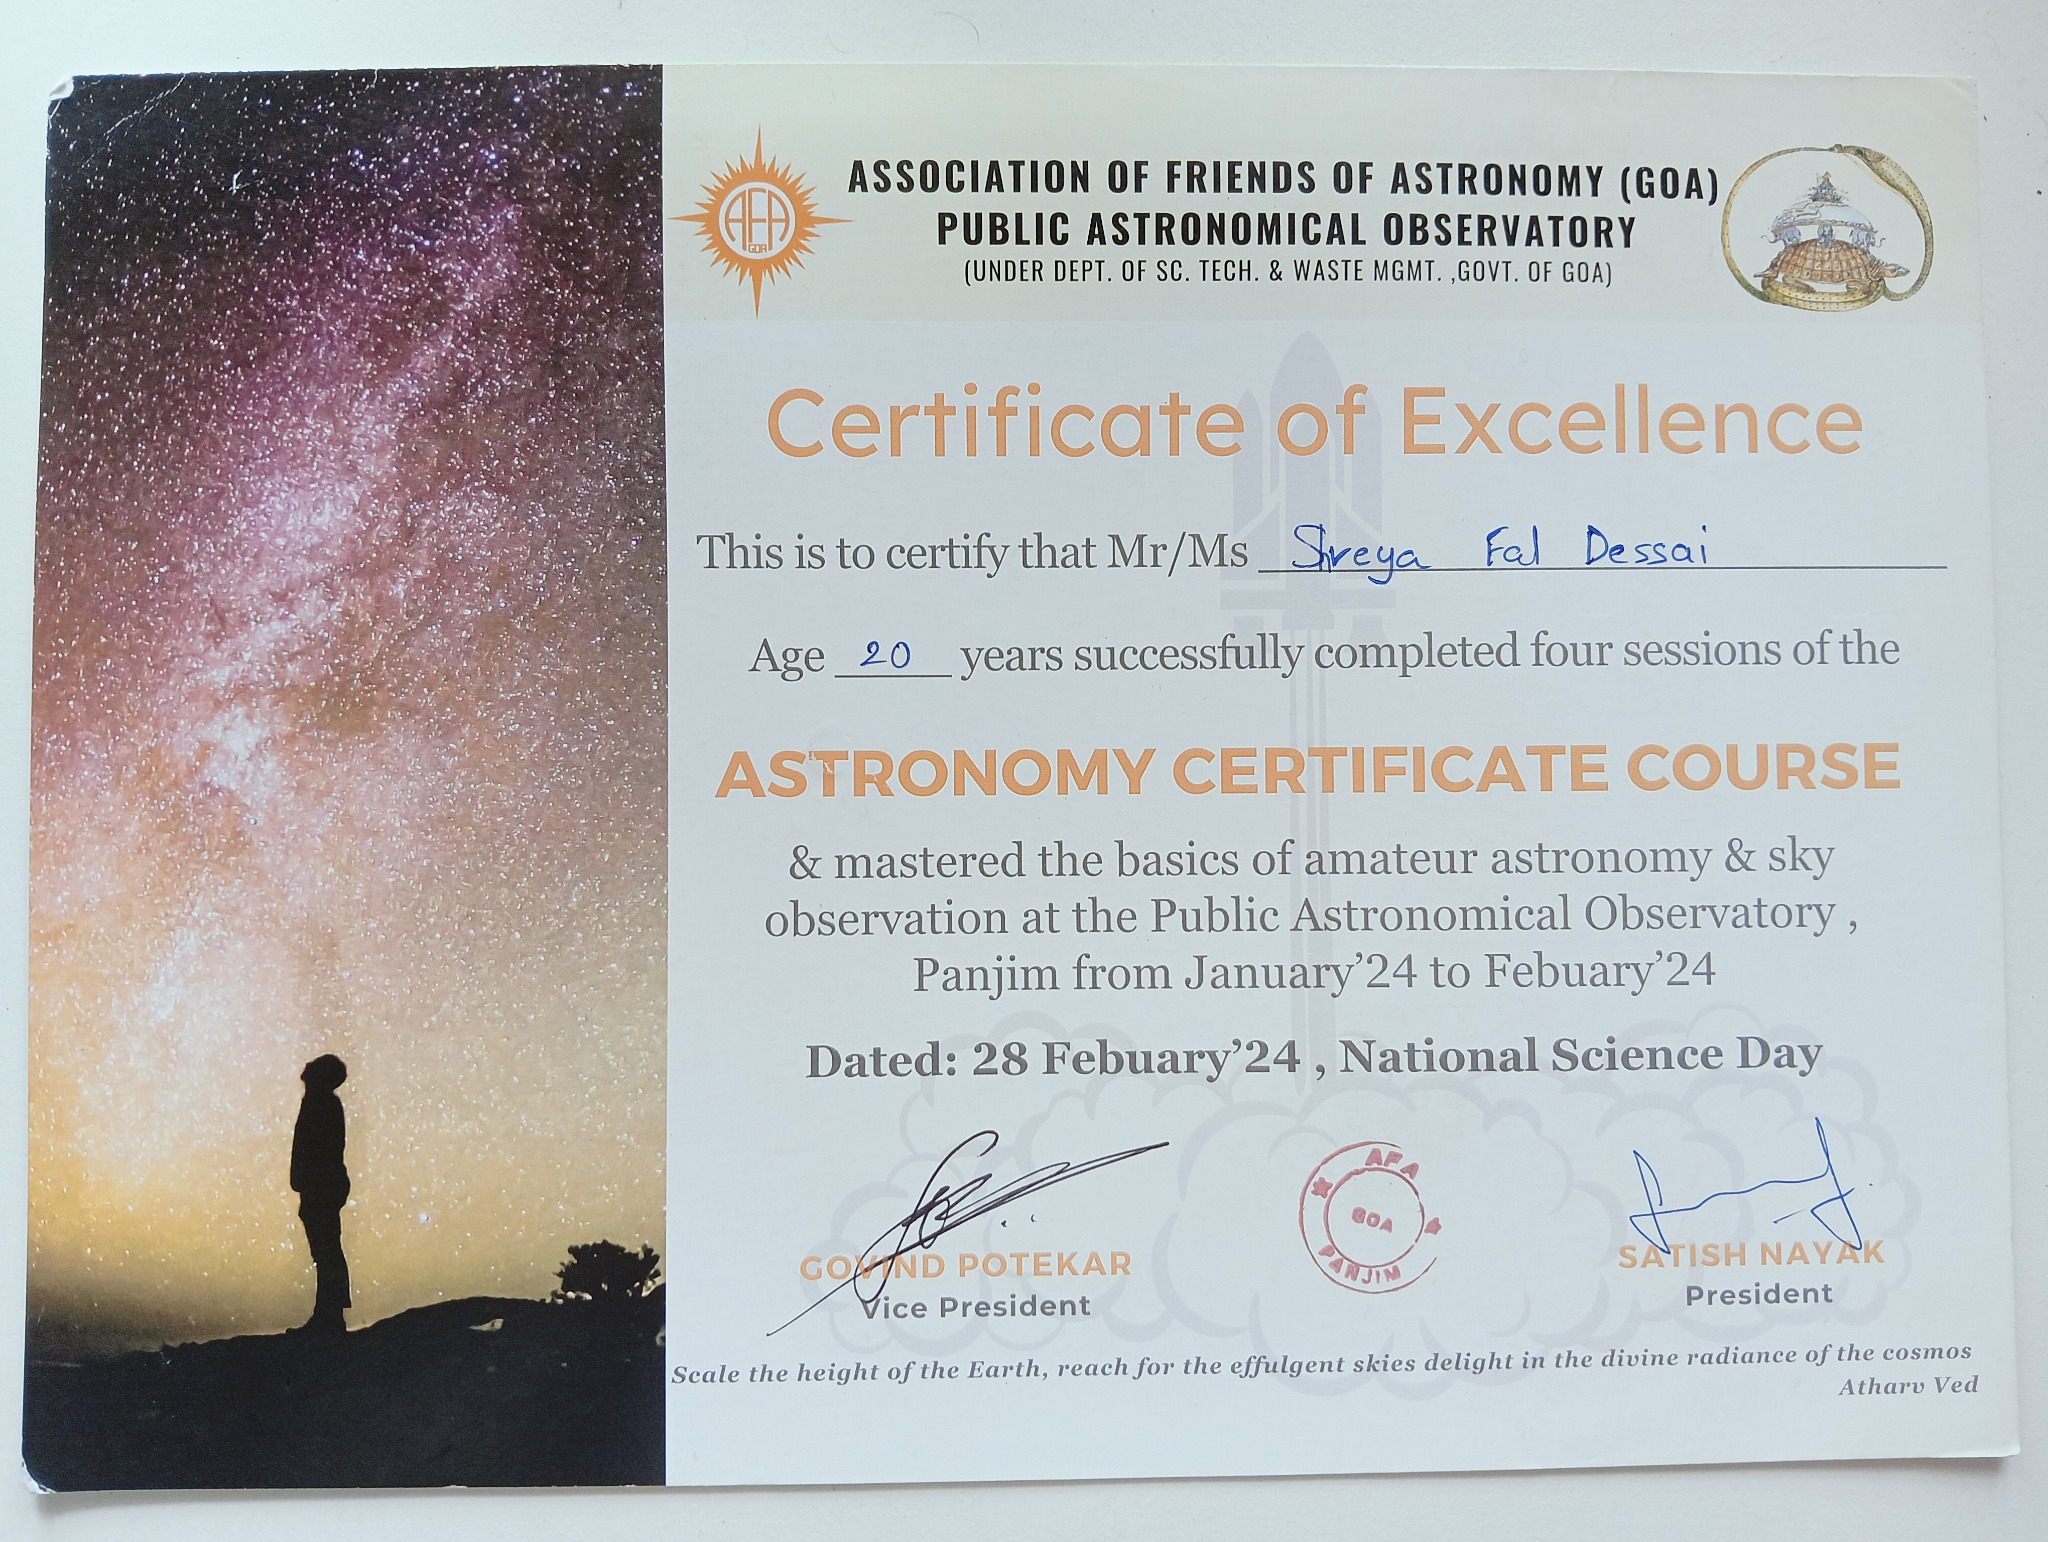 AFA
GOA
ASSOCIATION OF FRIENDS OF ASTRONOMY (GOA)
PUBLIC ASTRONOMICAL OBSERVATORY
(UNDER DEPT. OF SC. TECH. & WASTE MGMT. ,GOVT. OF GOA)
Certificate of Excellence
This is to certify that Mr/Ms Shreya Fal Dessai
Age 20 years successfully completed four sessions of the
ASTRONOMY CERTIFICATE COURSE
& mastered the basics of amateur astronomy & sky
observation at the Public Astronomical Observatory ,
Panjim from January'24 to Febuary'24
Dated: 28 Febuary'24 , National Science Day
AFA
GOA
PANJIM
GOVIND POTEKAR
Vice President
SATISH NAYAK
President
Scale the height of the Earth, reach for the effulgent skies delight in the divine radiance of the cosmos
Atharv Ved